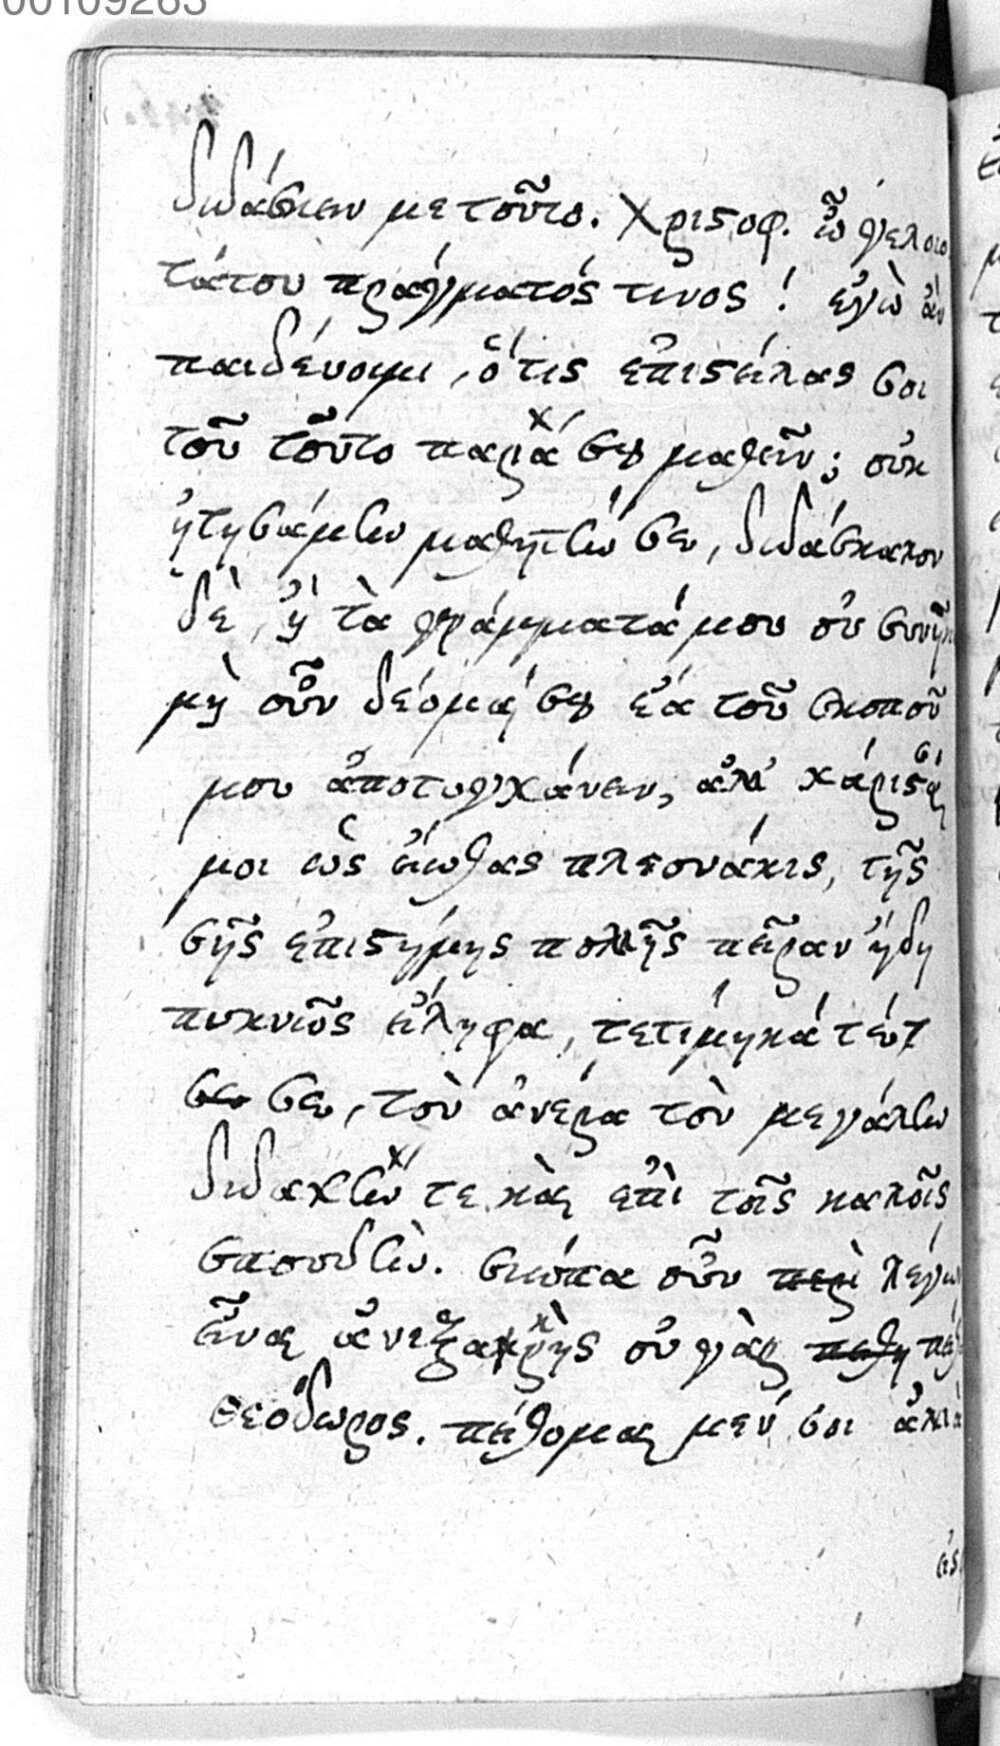 00109263
διδάσκειν με τοῦτο. Χριστοφ. ὦ γελοιο
τάτου πράγματός τινος! ἐγὼ ἂν
παιδεύοιμι, ὅτις ἐπιστείλας σοι
τοῦ τοῦτο παρὰ σου μαθεῖν; οὐκ
ᾐτησάμην μαθητήν σευ, διδάσκαλον
δὲ, ἢ τὰ γράμματά μου οὐ συνῆκ
μὴ οὖν δέομαί σου ἔα τοῦ σκοποῦ
μου ἀποτυγχάνειν, ἀλλὰ χάρισαί
μοι ὡς εἴωθας πλεονάκις, τῆς
σῆς ἐπιστήμης πολλῆς πεῖραν ἤδη
πυκνῶς εἴληφα, τετίμηκά τέ
σευ, τὸν ἀνέρα τὸν μεγάλην
διδαχὴν τε καὶ ἐπὶ τοῖς καλοῖς
σπουδὴν. σκόπα οὖν λέγω
εἶναι οὐ γὰρ
Θεόδωρος. πείθομαι μέν σοι ἀλλὰ
εἰς